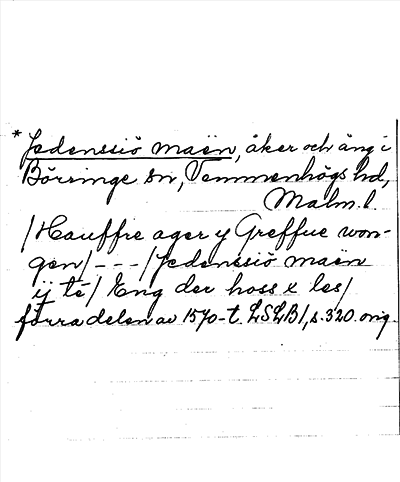 * Jedenssiö maën, åker och äng i
Börringe sn, Vemmenhögs hd,
Malm. l.
/Hauffre ager y Greffue won-
gen/ - - - /Jedenssiö maën
ij te/ Eng der hoss x les/
förra delen av 1570-t. LSLB1, s. 320. orig.